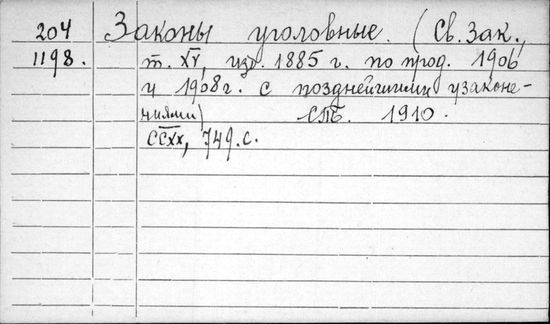 204 Законы уголовные. (Св. Зак.,
1198. т. XV, изд. 1885 г. по прод. 1906
и 1908 г. с позднейшими узаконе-
ниями) СПБ. 1910.
CCXX, 749. с.